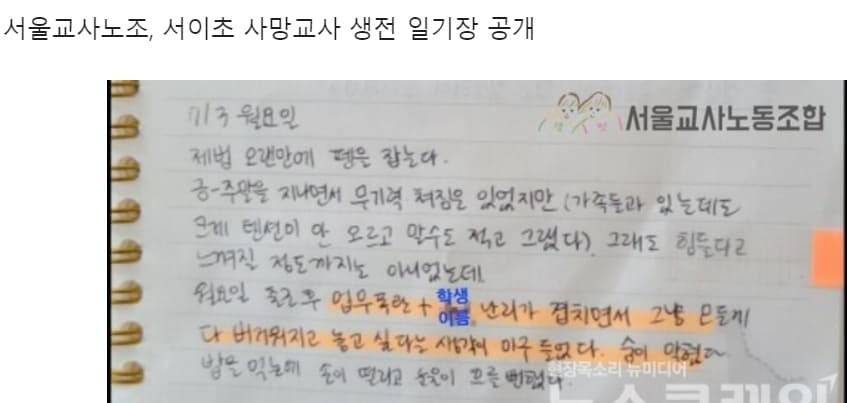 서울교사노조, 서이초 사망교사 생전 일기장 공개
서울교사노동조합
7/3 월요일
제법 오랜만에 펜을 잡는다.
금-주말을 지나면서 무기력 처짐은 있었지만 (가족들과 있는데도
크게 텐션이 안 오르고 말수도 적고 그랬다). 그래도 힘들다고
느껴질 정도까지는 아니었는데
월요일 출근 후 업무폭탄 + 학생 이름 난리가 겹치면서 그냥 모든게
다 버거워지고 놓고 싶다는 생각이 마구 들었다. 숨이 막혔다.
밥을 먹는데 손이 떨리고 눈물이 흐를 뻔했다.
현장목소리 뉴미디어